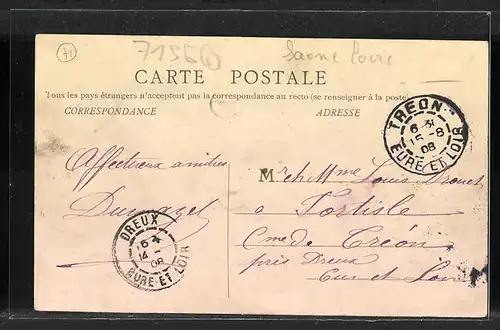 71
Saone Loire
CARTE POSTALE
Tous les pays étrangers n'acceptent pas la correspondance au recto (se renseigner à la poste)
CORRESPONDANCE
ADRESSE
TREON
6 31
15 -8
08
EURE ET LOIR
Affectueux amitiés
Mr et Mme Louis Drouet
a Fortisle
Cme de Tréon
près Dreux
Eure et Loir
DREUX
14
08
EURE ET LOIR